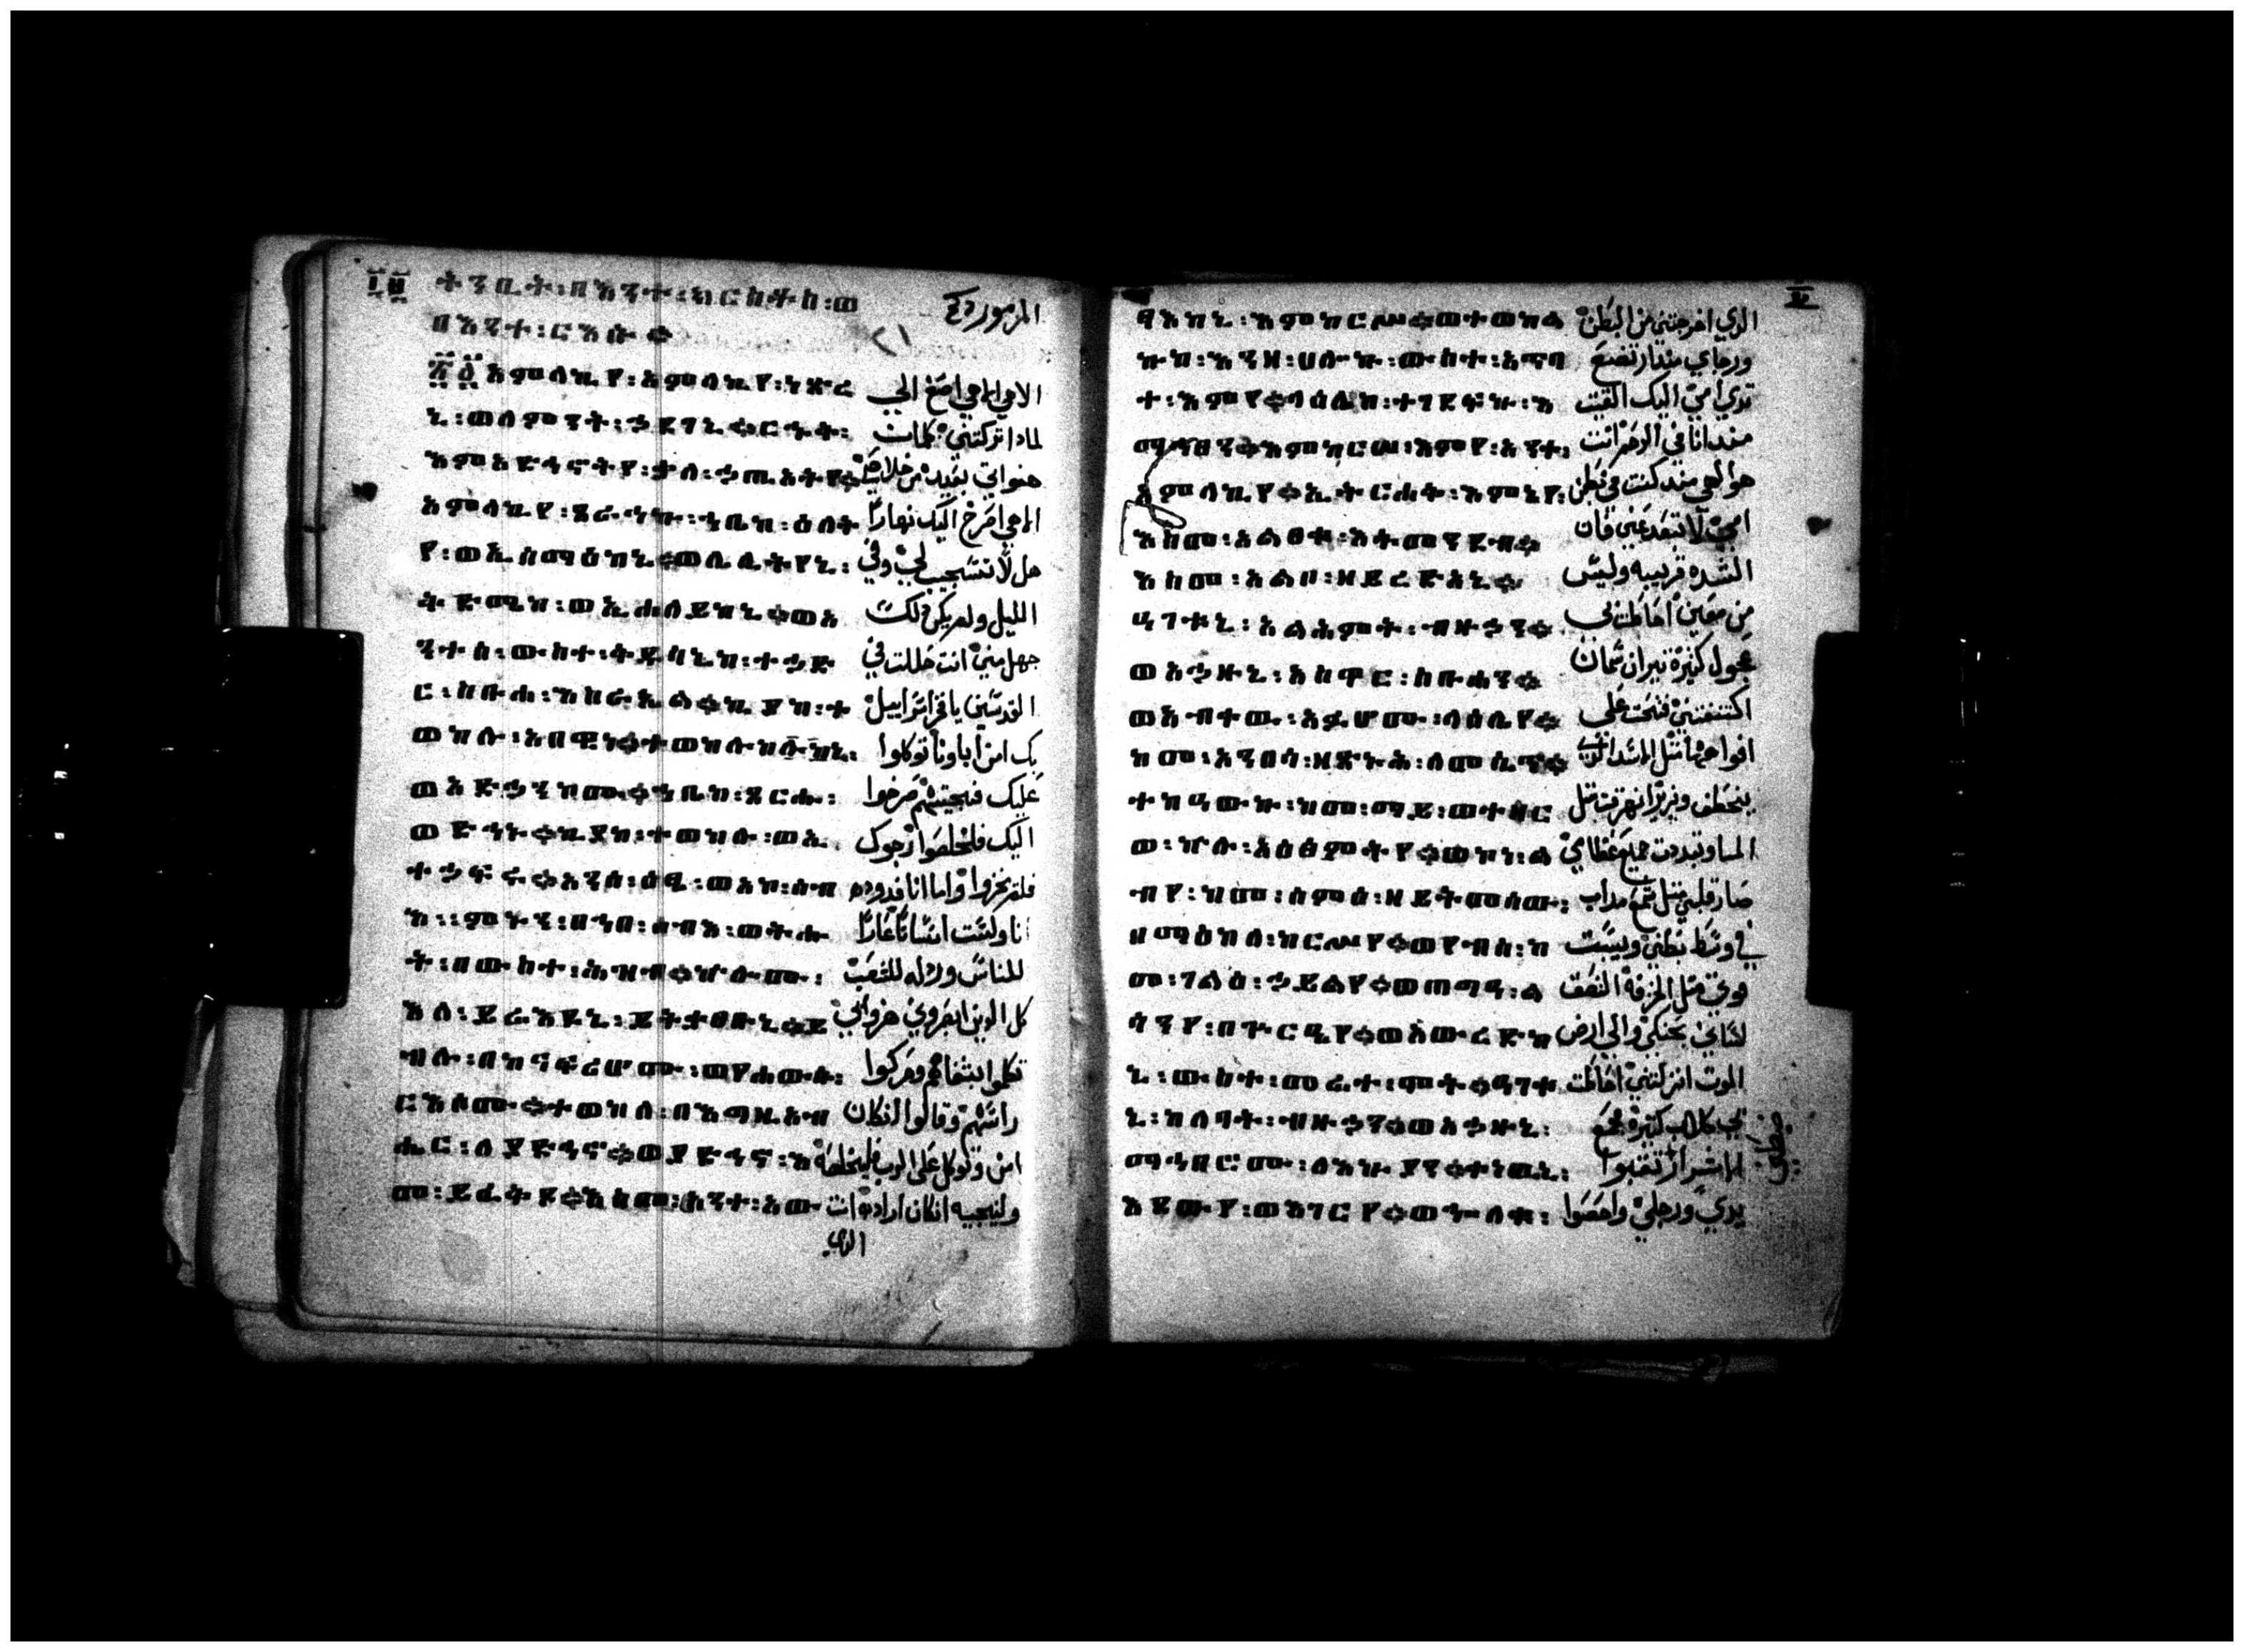 በእንተ፡ርእሱ።
፳፩ አምላኪየ፡አምላኪየ፡ነጽረ الاهي الاهي اصغ الي
ኒ፡ወለምንት፡ኀደገኒ።ርኁቅ፡ لمادا تركتني كلمات
እምአድኅኖትየ፡ቃለ፡ኃጢአትየ። من خلاصي
አምላኪየ፡ጸራኅኩ፡ኀቤከ፡ዕለት الاهي اصرخ اليك نهارًا
የ፡ወኢሰማዕከኒ።ወሌሊትየኒ፡ تستجيب لي وفي
الليل ولم يكن لك
ንተሰ፡ውስተ፡ቅዱሳኒከ፡ተኀድ جهل مني انت حللت في
ር፡ክብሩ፡ለእስራኤል።ኪያከ፡ተ القدسين يا فخر اسراييل
ወከሉ፡አበዊነ።ተወከሉከኒ፡ بك امن اباونا توكلوا
ወአድኀንኮሙ።ኀቤከ፡ጸርሑ፡ عليك فنجيتهم صرخوا
ወድኅኑ።ኪያከ፡ተወከሉ፡ወኢ اليك فخلصوا رجوك
ተኀፍሩ።አንሰ፡ዕፄ፡ወአኮ፡ሰብ فلم يخزوا واما انا فدوده
እ።ምኑን፡በኀበ፡ሰብእ፡ወትሑ انا ولست انسانًا عارًا
ት፡በውስተ፡ሕዝብ።ኵሎሙ፡ للناس ورذله للشعب
እለ፡ይሬእዩኒ፡ይትቃጸቡኒ።ይ كل الدين ابصروني هزوا بي
ብሉ፡በከናፍሪሆሙ፡ወየሐውሱ፡ تكلموا بشفاههم وحركوا
ርእሶሙ።ተወከለ፡በእግዚአብ راسهم وقالوا انكان
ሔር፡ለያድኅኖ።ወያድኅኖ፡እ امن وتوكل علي الرب فليخلصه
መ፡ይፈትዎ።እስመ፡አንተ፡አው ولينجيه انكان اراده انت
الدي
ፃእከኒ፡እምከርሥ።ወተወከል الدي اخرجتني من البطن
ኩከ፡እንዘ፡ሀሎኩ፡ውስተ፡አጥባ ورجاي مندارتضع
ተ፡እምየ።ላዕሌከ፡ተገደፍኩ፡እ تدي امي اليك القيت
ማኅፀን።እምከርሠ፡እምየ፡አንተ፡ مندانا في الرحم انت
አምላኪየ።ኢትርሐቅ፡እምኔየ፡ هو الهي مند كنت في بطن
እስመ፡አልፀቀ፡አትመንድቦ። امي لا تبعد عني فان
እስመ፡አልቦ፡ዘይረድአኒ። الشده قريبه وليس
ዐገቱኒ፡አልሕምት፡ብዙኃን። من معين احاطت بي
ወአኀዙኒ፡አስዋር፡ስቡሓን። عجول كثيرة تيران سمان
ወአብቀዉ፡አፉሆሙ፡ላዕሌየ። اكتنفتني فتحت علي
ከመ፡አንበሳ፡ዘጽኑሕ፡ለመሲጥ። افواهها متل الاسد الدي
ተከዐውኩ፡ከመ፡ማይ፡ወተዘር يخطف ويزير انهرقت متل
ወ፡ኵሉ፡አዕፅምትየ።ወኮነ፡ል الما وتبددت جميع عظامي
ብየ፡ከመ፡ሰምዕ፡ዘይትመሰው፡ صار قلبي متل شمع مداب
በማዕከለ፡ከርሥየ።ወየብሰ፡ከ في وسط بطني ويبست
መ፡ገልዕ፡ኀይልየ።ወጠግዐ፡ል قوتي متل الخزفة التصق
ሳንየ፡በጕርዔየ።ወአውረድከ لساني بحنكي والي ارض
ኒ፡ውስተ፡መሬተ፡ሞት።ዐገቱ الموت انزلتني احاطت
ኒ፡ከለባት፡ብዙኃን።ወአኀዙኒ፡ بي كلاب كتيرة مجمع
ማኅበሮሙ፡ለእኩያን።ቀነዉኒ፡ الاشرار ثقبوا
አደውየ፡ወእገርየ።ወኈለቁ፡ يدي ورجلي واحصوا